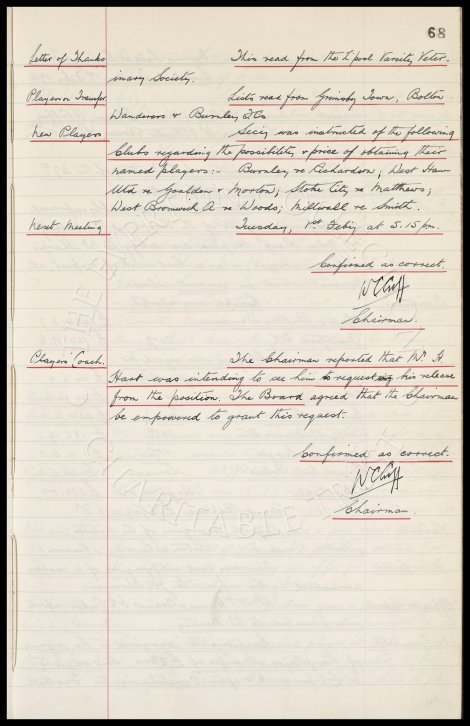 68
Letter of Thanks This read from the L'pool Varsity Veter-
inary Society.
Players on Transfer Lists read from Grimsby Town, Bolton
Wanderers & Burnley F.Cs
New Players Secy was instructed of the following
Clubs regarding the possibility & price of obtaining their
named players:- Burnley re Richardson; West Ham
Utd re Goulden & Morton; Stoke City re Matthews;
West Bromwich A re Woods; Millwall re Smith.
Next Meeting Tuesday, 1st Feby at 5.15 pm.
Confirmed as correct.
W C Cuff
Chairman.
Players' Coach. The Chairman reported that Mr H
Hart was intending to see him to request his release
from the position. The Board agreed that the Chairman
be empowered to grant this request.
Confirmed as correct.
W. C Cuff
Chairman.
CHARITABLE